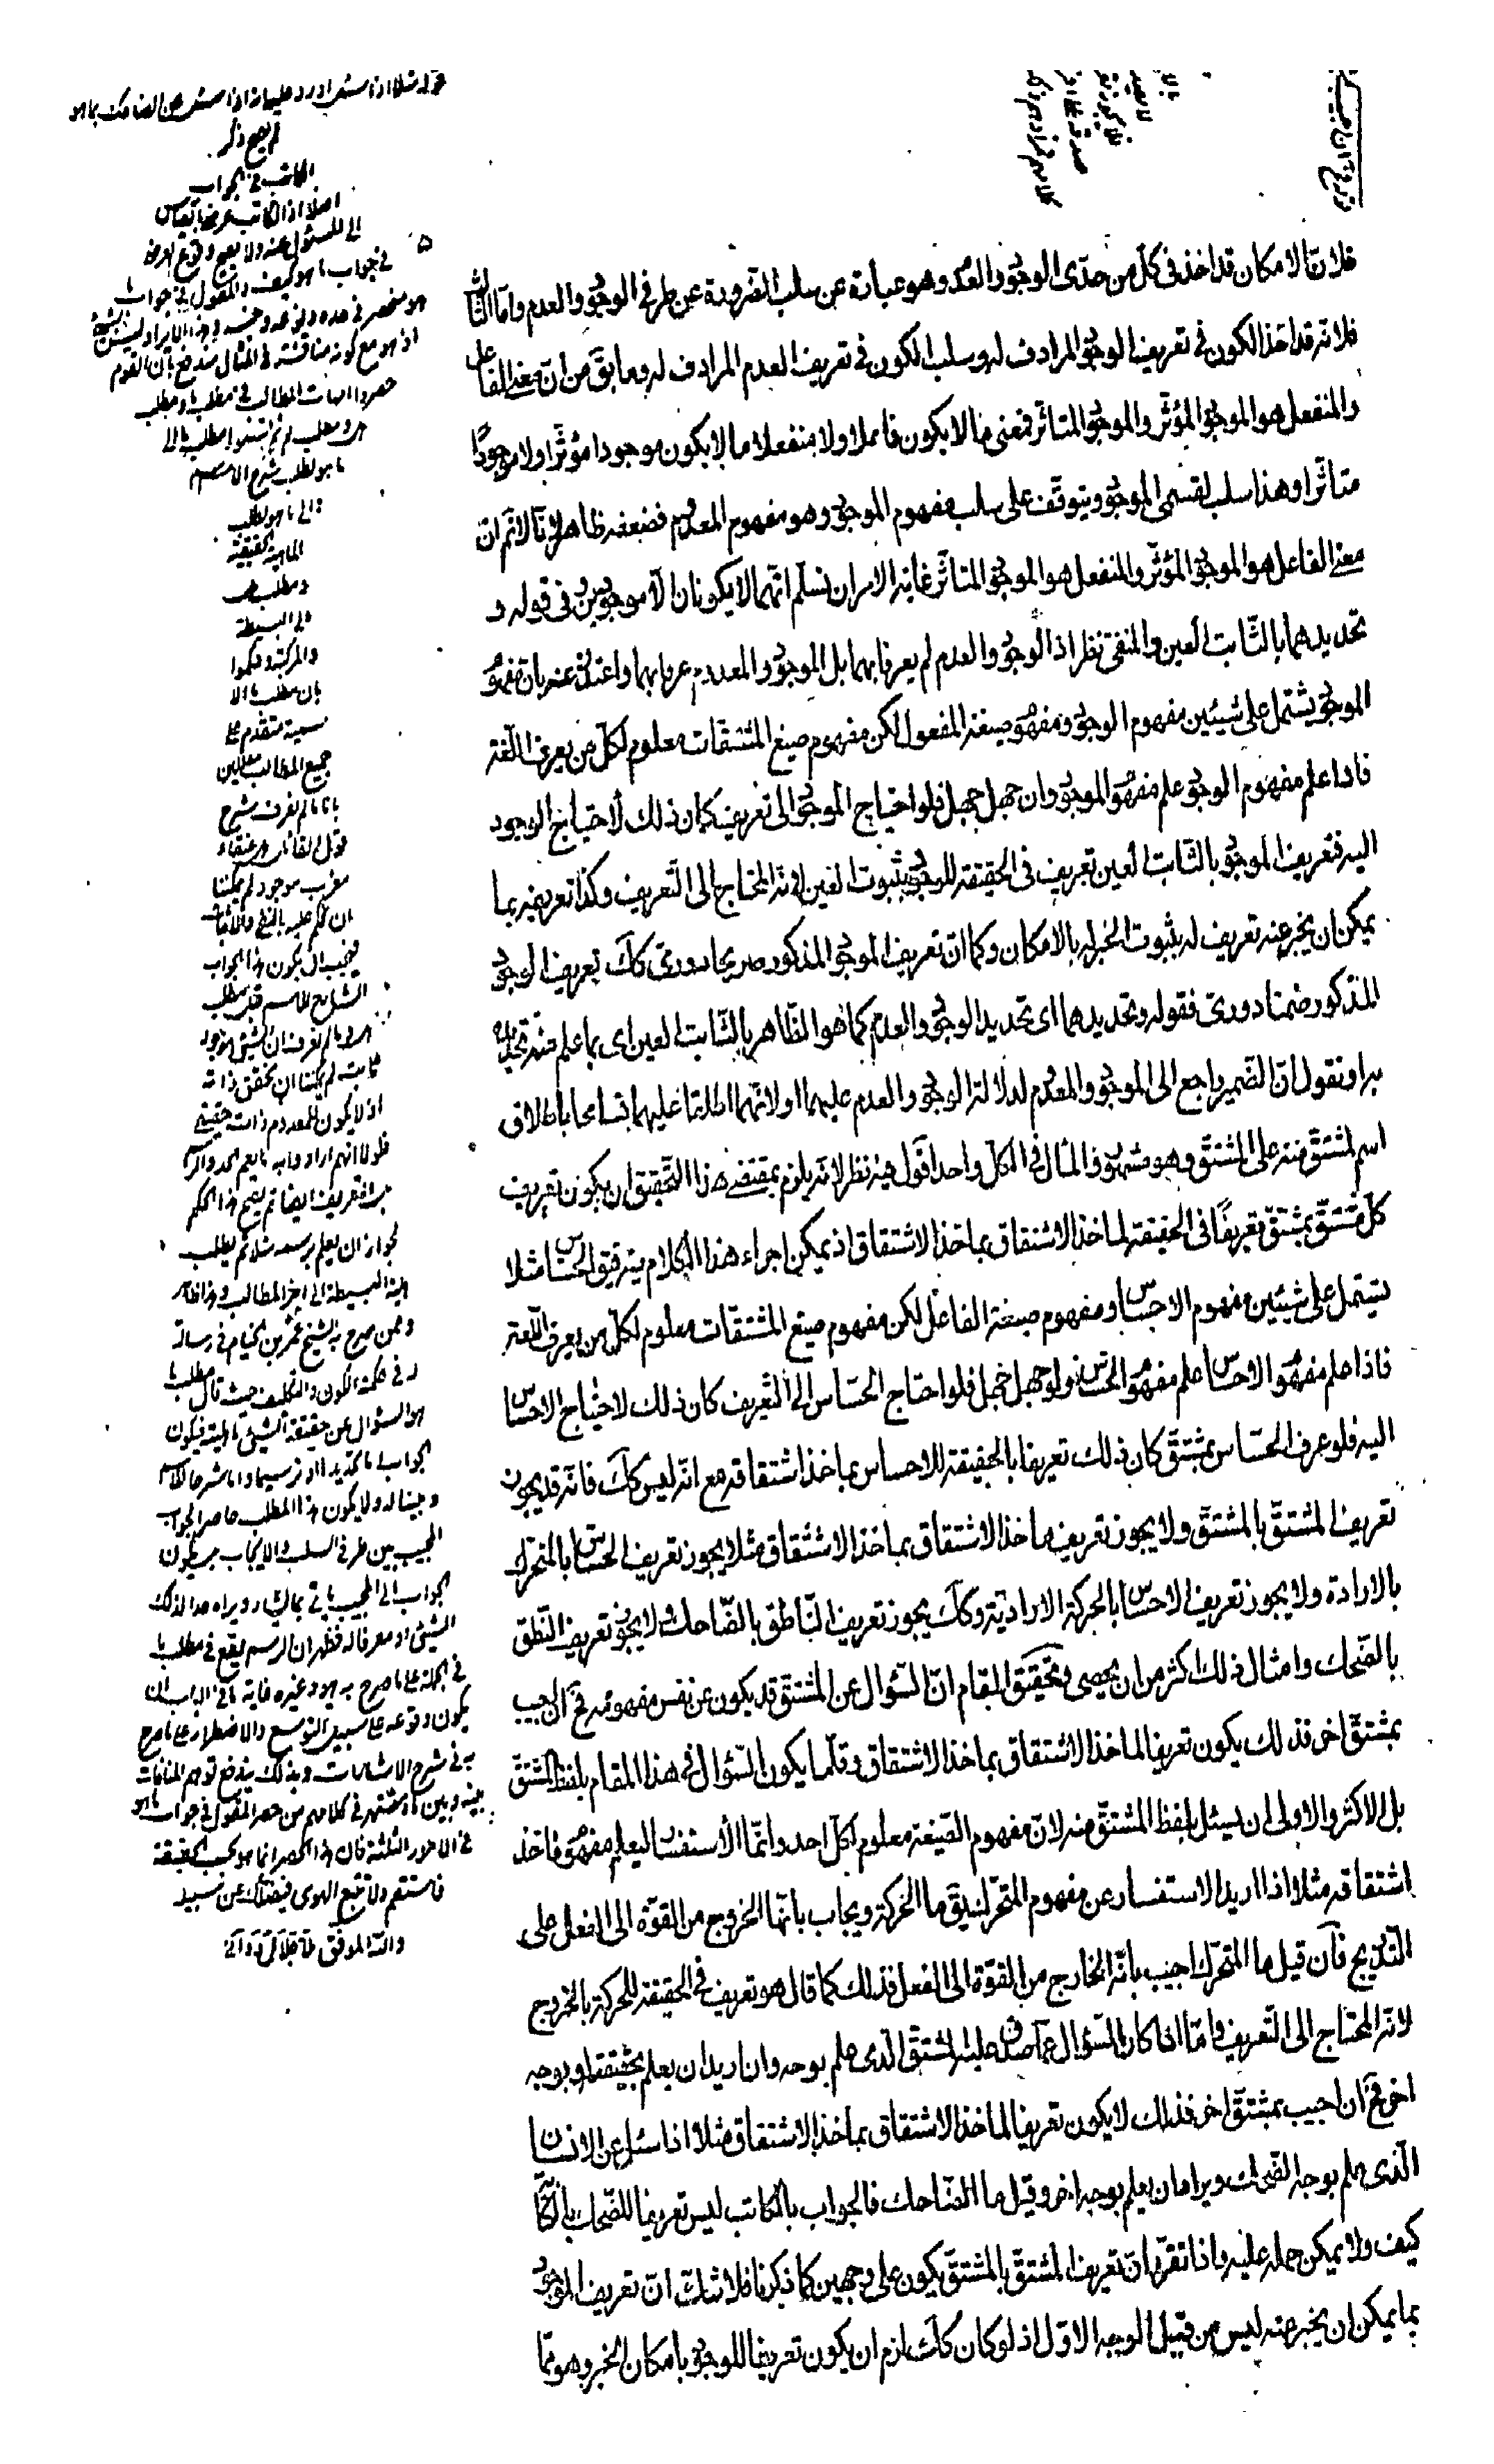 فلان الامكان قد اخذ فى كل من حدّى الوجود والعدم وهو عبارة عن سلب الضرورة عن طرفى الوجود والعدم واما الثالث
فلانه قد اخذ الكون فى تعريف الوجود المرادف له وسلب الكون فى تعريف العدم المرادف له وما يق من ان معنى الفاعل
والمنفعل هو الموجود المؤثّر والموجود المتاثّر فمعنى ما لا يكون فاعلا ولا منفعلا ما لا يكون موجودا مؤثّرا ولا موجودًا
متاثّرا وهذا سلب لقسمى الموجود ويتوقّف على سلب مفهوم الموجود وهو مفهوم المعدوم فضعفه ظاهر لانّا لا نم ان
معنى الفاعل هو الموجود المؤثّر والمنفعل هو الموجود المتاثّر غاية الامر ان نسلّم انّهما لا يكونان الّا موجودين وفى قوله و
تحديدهما بالثّابت العين والمنفى نظر اذ الوجود والعدم لم يعرفا بهما بل الموجود والمعدوم عرفا بهما واعتذر عنه بان مفهوم
الموجود يشتمل على شيئين مفهوم الوجود ومفهوم صيغة المفعول لكن مفهوم صيغ المشتقّات معلوم لكلّ من يعرف اللّغة
فاذا علم مفهوم الوجود علم مفهوم الموجود وان جهل جهل فلو احتاج الموجود الى تعريف كان ذلك لاحتياج الوجود
اليه فتعريف الموجود بالثّابت العين تعريف فى الحقيقة للوجود بثبوت العين لانه المحتاج الى التّعريف وكذا تعريفه بما
يمكن ان يخبر عنه تعريف له بثبوت الخبر له بالامكان وكما انّ تعريف الموجود المذكور صريحا دورىّ كك تعريف الوجود
المذكور ضمنا دورىّ فقوله وتحديدهما اى تحديد الوجود والعدم كما هو الظّاهر بالثّابت العين اى بما علم منه تحديده
به او نقول انّ الضّمير راجع الى الموجود والمعدوم لدلالة الوجود والعدم عليهما او لانّهما اطلقا عليهما تسامحا باطلاق
اسم المشتقّ منه على المشتقّ وهو مشهور والمثال فى الكل واحد اقول فيه نظر لانّه يلزم بمقتضى هذا التّحقيق ان يكون تعريف
كل مشتقّ بمشتقّ تعريفًا فى الحقيقة لماخذ الاشتقاق بماخذ الاشتقاق اذ يمكن اجراء هذا الكلام فيه فيق الحسّاس مثلا
يشتمل على شيئين مفهوم الاحساس ومفهوم صيغة الفاعل لكن مفهوم صيغ المشتقّات معلوم لكلّ من يعرف اللّغة
فاذا علم مفهوم الاحساس علم مفهوم الحسّاس ولو جهل جهل فلو احتاج الحسّاس الى التّعريف كان ذلك لاحتياج الاحساس
اليه فلو عرف الحسّاس بمشتقّ كان ذلك تعريفا بالحقيقة للاحساس بماخذ اشتقاقه مع انّه ليس كك فانّه قد يجوز
تعريف المشتقّ بالمشتقّ ولا يجوز تعريف ماخذ الاشتقاق بماخذ الاشتقاق مثلا يجوز تعريف الحسّاس بالمتحرّك
بالارادة ولا يجوز تعريف الاحساس بالحركة الاراديّة وكك يجوز تعريف النّاطق بالضّاحك ولا يجوز تعريف النّطق
بالضّحك وامثال ذلك اكثر من ان يحصى وتحقيق المقام انّ السّؤال عن المشتقّ قد يكون عن نفس مفهومه فح ان اجيب
بمشتقّ اخر فذلك يكون تعريفا لماخذ الاشتقاق بماخذ الاشتقاق وقلّما يكون السّؤال فى هذا المقام بلفظ المشتقّ
بل الاكثر والاولى ان يسئل بلفظ المشتقّ منه لانّ مفهوم الصّيغة معلوم لكل احد وانّما الاستفسار ليعلم مفهوم ماخذ
اشتقاقه مثلا اذا اريد الاستفسار عن مفهوم المتحرّك يق ما الحركة ويجاب بانّها الخروج من القوّة الى الفعل على
التّدريج فان قيل ما المتحرّك اجيب بانّه الخارج من القوّة الى الفعل فذلك كما قال هو تعريف فى الحقيقة للحركة بالخروج
لانّه المحتاج الى التّعريف وامّا اذا كان السّؤال عمّا صدق عليه المشتقّ الّذى علم بوجه واريد ان يعلم بحقيقته او بوجه
اخر فح ان اجيب بمشتقّ اخر فذلك لا يكون تعريفا لماخذ الاشتقاق بماخذ الاشتقاق مثلا اذا سئل عن الانسان
الّذى علم بوجه الضّحك ويراد ان يعلم بوجه اخر وقيل ما الضّاحك فالجواب بالكاتب ليس تعريفا للضّحك بالكتابة
كيف ولا يمكن حمله عليه واذا تقرّر انّ تعريف المشتقّ بالمشتقّ يكون على وجهين كما ذكرنا فلا شك انّ تعريف الموجود
بما يمكن ان يخبر عنه ليس من قبيل الوجه الاوّل اذ لو كان كك لزم ان يكون تعريفا للوجود بامكان الخبر وهو ممّا
لم يصح ذكر
الكاتب فى الجواب
اصلا اذ الكاتب عرض بالقياس
الى المسئول عنه ولا يصح وقوع العرض
فى جواب ما هو كيف والمقول فى جواب ما
هو منحصر فى حده ونوعه وجنسه وهذا الايراد ليس بشىء
اذ هو مع كونه مناقشة فى المثال مندفع بان القوم
حصروا امهات المطالب فى مطلب ما ومطلب
هل ومطلب لم ثم قسموا مطلب ما الى
ما هو لطلب شرح الاسم
والى ما هو لطلب
الماهية الحقيقية
ومطلب هل
الى البسيطة
والمركبة وحكموا
بان مطلب ما الا
سمية متقدم على
جميع المطالب معللين
بانا ما لم نعرف شرح
مغرب موجود لم يمكننا
ان نحكم عليه بالنفى والاثبات
فيجب ان يكون هذا الجواب
الشارح للاسم قبل مطلب
هل وما لم نعرف ان الشىء موجود
ثابت لم يمكننا ان نحقق ذاته
اذ لا يكون للمعدوم ذات حقيقى
فلولا انهم ارادوا به ما يعم الحد والرسم
لجواز ان يعلم برسمه مثلا ثم يطلب
هلية البسيطة الى اخر المطالب وهذا ظاهر
وممن صرح به الشيخ عمر بن الخيام فى رسالة
له فى حكمة الكون والتكليف حيث قال مطلب ما
هو السئوال عن حقيقة الشىء وماهيته فيكون
الجواب اما تحديدا او ترسيما واما شرحا للاسم
وبيانا له ولا يكون هذا المطلب حاصرا لجواب
المجيب بين طرفى السلب والايجاب بل يكون
الجواب الى المجيب ياتى بما يشاء ويراه حدا لذلك
الشىء او معرفا له فظهر ان الرسم يقع فى مطلب ما
فى الجملة على ما صرح به هو وغيره غاية ما فى الباب ان
يكون وقوعه على سبيل التوسع والاضطرار على ما صرح
به فى شرح الاشارات وبذلك يندفع توهم المنافات
بينه وبين ما اشتهر فى كلامهم من حصر المقول فى جواب ما هو
فى الامور الثلثة فان هذا الحصر انما هو بحسب الحقيقة
فاستقم ولا تتبع الهوى فيضلك عن سبيل
والله الموفق